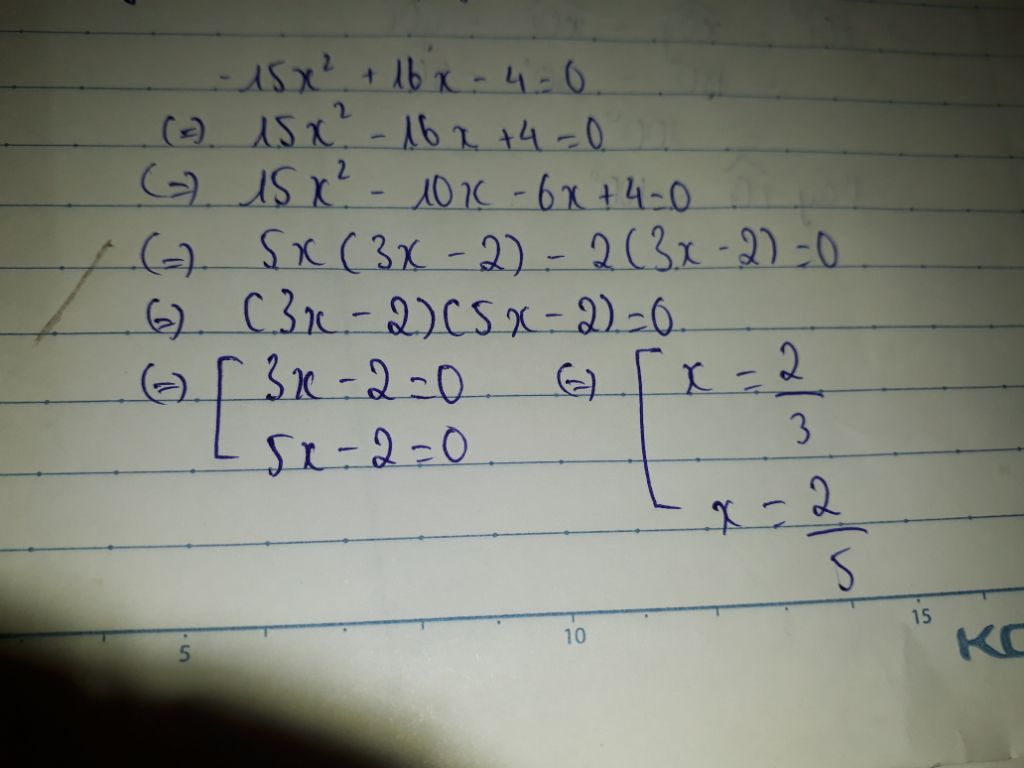 -15x² + 16x - 4 = 0
(=) 15x² - 16x + 4 = 0
(=) 15x² - 10x - 6x + 4 = 0
(=) 5x(3x - 2) - 2(3x - 2) = 0
(=) (3x - 2)(5x - 2) = 0
(=) [ 3x - 2 = 0 (=) [ x = 2/3
5x - 2 = 0
x = 2/5
5 10 15